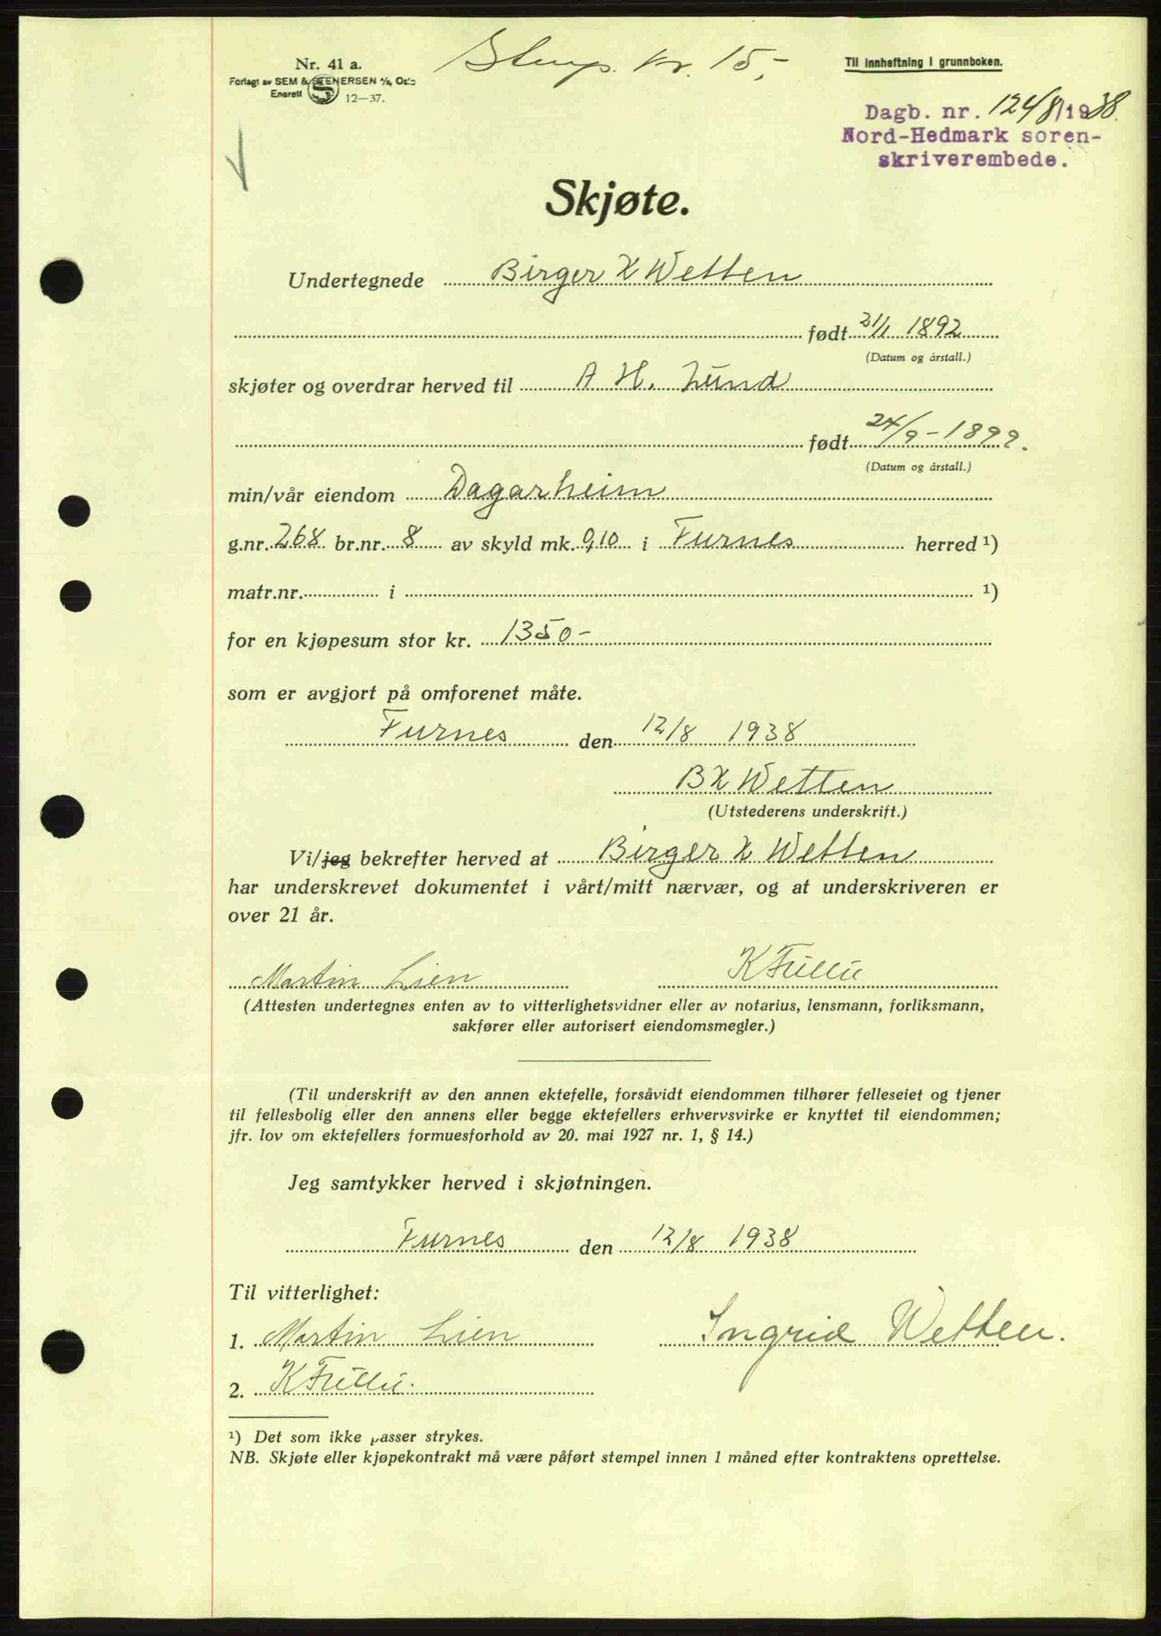 Nr. 41 a.
Forlagt av SEM & STENERSEN A/S, Oslo
Enerett S 12—37.
Stemp. kr. 15,-
Til innheftning i grunnboken.
Dagb. nr. 1248/1938
Nord-Hedmark soren-
skriverembede.
Skjøte.
Undertegnede Birger K Wetten
født 21/1 1892
(Datum og årstall.)
skjøter og overdrar herved til A H. Lund
født 24/9-1899.
(Datum og årstall.)
min/vår eiendom Dagarheim
g.nr. 268 br.nr. 8 av skyld mk. 0,10 i Furnes herred ¹)
matr.nr. i ¹)
for en kjøpesum stor kr. 1350-
som er avgjort på omforenet måte.
Furnes den 12/8 1938
BK Wetten
(Utstederens underskrift.)
Vi/jeg bekrefter herved at Birger K Wetten
har underskrevet dokumentet i vårt/mitt nærvær, og at underskriveren er
over 21 år.
Martin Lien K
(Attesten undertegnes enten av to vitterlighetsvidner eller av notarius, lensmann, forliksmann,
sakfører eller autorisert eiendomsmegler.)
(Til underskrift av den annen ektefelle, forsåvidt eiendommen tilhører felleseiet og tjener
til fellesbolig eller den annens eller begge ektefellers erhvervsvirke er knyttet til eiendommen;
jfr. lov om ektefellers formuesforhold av 20. mai 1927 nr. 1, § 14.)
Jeg samtykker herved i skjøtningen.
Furnes den 12/8 1938
Til vitterlighet:
1. Martin Lien Ingrid Wetten.
2. K
¹) Det som ikke passer strykes.
NB. Skjøte eller kjøpekontrakt må være påført stempel innen 1 måned efter kontraktens oprettelse.